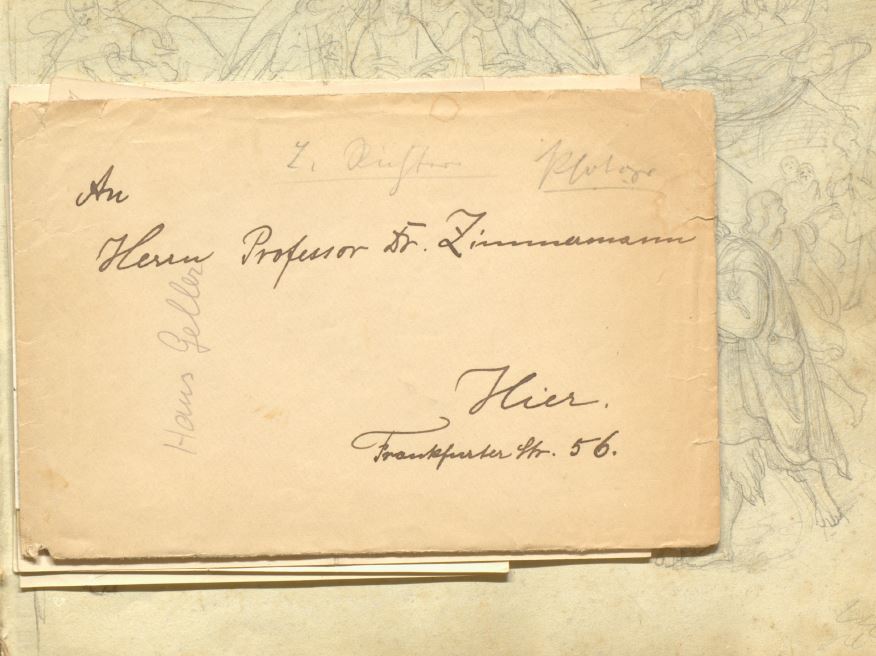 An
Herrn Professor Dr. Zimmermann
Hier.
Frankfurter Str. 56.
Hans Geller